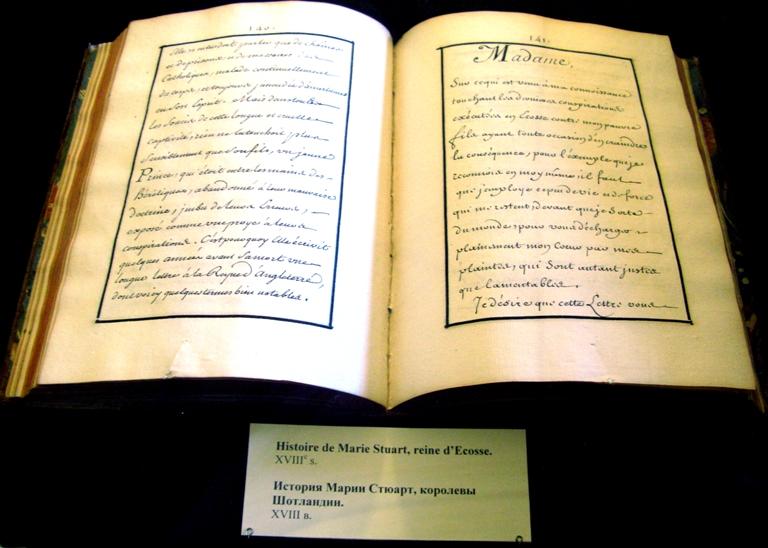 140.
Elle n'entendoit parler que de chaînes
et de prisons, et de massacres des
Catholiques, malade continuellement
de corps, et toujours
en son Esprit. Mais dans toutes
les de cette longue et cruelle
captivité, rien ne la touchoit plus
sensiblement que son fils, un jeune
Prince, qui étoit entre les mains des
Hérétiques, abandonné à leur mauvaise
doctrine, imbu de leurs Erreurs,
exposé comme une proye à leurs
conspirations. C'est pourquoy Elle écrivit
quelques années avant sa mort une
longue lettre à la Royne d'Angleterre,
dont voicy quelques termes bien notables.
141.
Madame,
Sur ce qui est venu à ma connoissance
touchant les dernieres conspirations
exécutées en Ecosse contre mon pauvre
fils ayant toute occasion d'en craindre
la conséquence, pour l'exemple que je
reconnois en moy même, il faut
que j'employe ce peu de vie et de force
qui me restent, devant que je sorte
du monde, pour vous décharger
plainement mon Coeur par mes
plaintes, qui sont autant justes
que lamentables.
Je désire que cette Lettre vous
Histoire de Marie Stuart, reine d'Ecosse.
XVIIIe s.
История Марии Стюарт, королевы
Шотландии.
XVIII в.